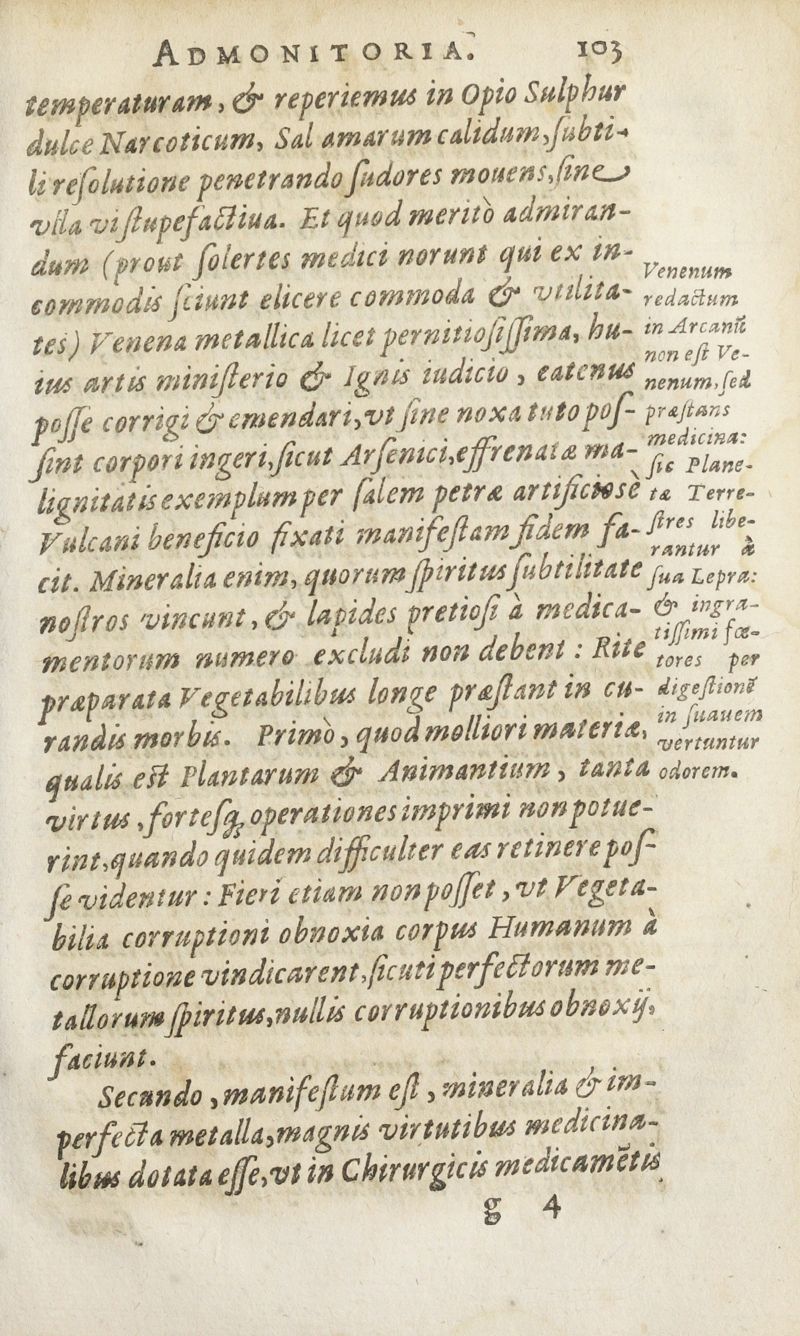 ADMONITORIA. 103
temperaturam, & reperiemus in Opio Sulphur
dulce Narcoticum, Sal amarum calidum, ſubti-
li reſolutione penetrando ſudores mouens, ſine
vlla vi ſtupefactiua. Et quod meritò admiran-
dum (prout ſolertes medici norunt qui ex in-
commodis ſciunt elicere commoda & vtilita-
tes) Venena metallica licet pernitioſiſſima, hu-
ius artis miniſterio & Ignis iudicio, eatenus
poſſe corrigi & emendari, vt ſine noxa tuto poſ-
ſint corpori ingeri, ſicut Arſenici, effrenatæ ma-
lignitatis exemplum per ſalem petræ artificiosè
Vulcani beneficio fixati manifeſtam fidem fa-
cit. Mineralia enim, quorum ſpiritus ſubtilitate
noſtros vincunt, & lapides pretioſi à medica-
mentorum numero excludi non debent: Rite
præparata Vegetabilibus longe præſtant in cu-
randis morbis. Primò, quod molliori materiæ,
qualis eſt Plantarum & Animantium, tanta
virtus, forteſq́; operationes imprimi non potue-
rint, quando quidem difficulter eas retinere poſ-
ſe videntur: Fieri etiam non poſſet, vt Vegeta-
bilia corruptioni obnoxia corpus Humanum à
corruptione vindicarent, ſicuti perfectorum me-
tallorum ſpiritus, nullis corruptionibus obnoxij,
faciunt.
Secundo, manifeſtum eſt, mineralia & im-
perfecta metalla, magnis virtutibus medicina-
libus dotata eſſe, vt in Chirurgicis medicamētis
g 4
Venenum
redactum
in Arcanū
non eſt Ve-
nenum, ſed
præſtans
medicina:
ſic Plane-
tæ Terre-
ſtres libe-
rantur à
ſua Lepra:
& ingra-
tiſſimi fœ-
tores per
digeſtionē
in ſuauem
vertuntur
odorem.